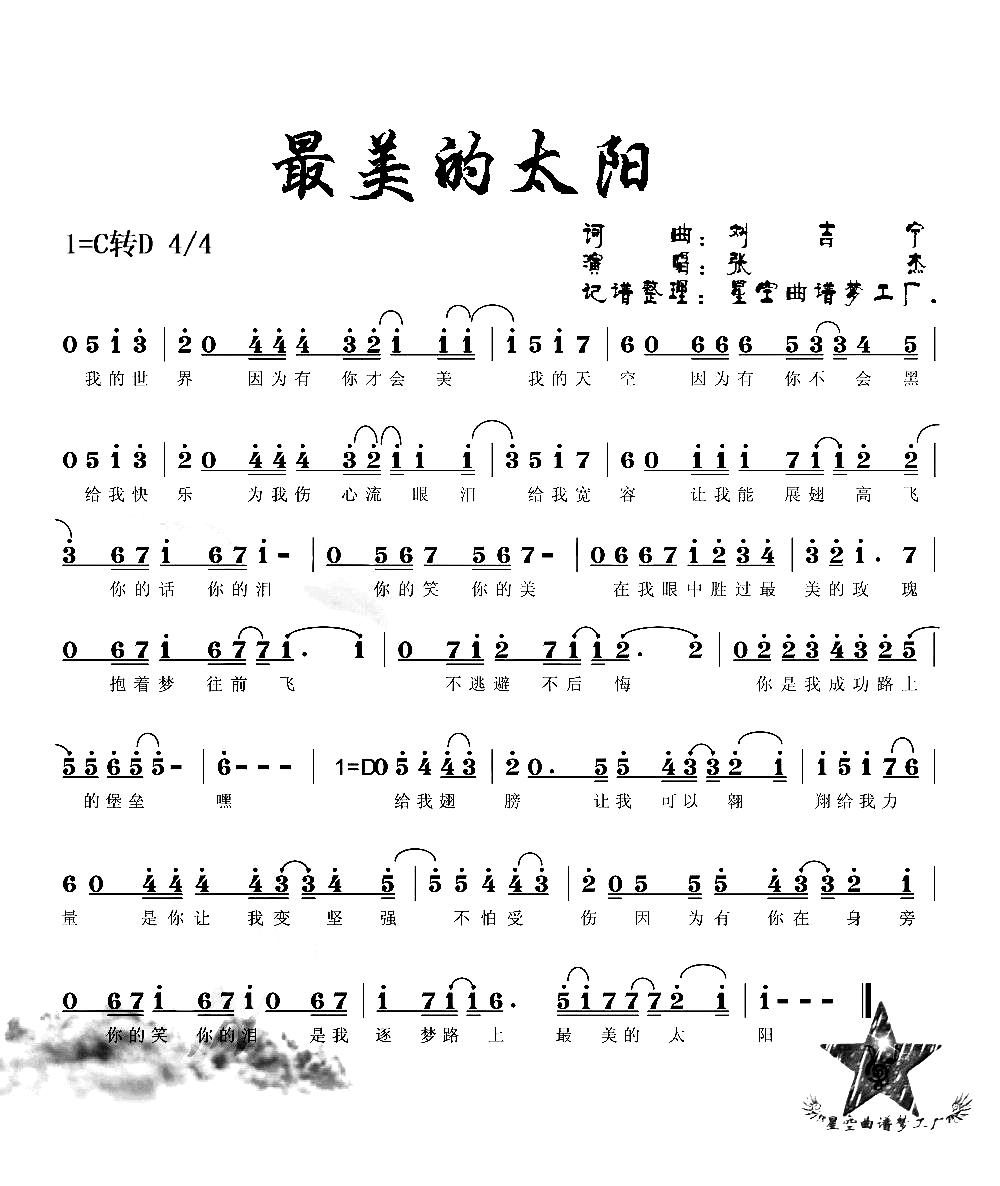 最美的太阳
1=C转D 4/4
词曲：刘吉宁
演唱：张杰
记谱整理：星空曲谱梦工厂.
0 5 1 3 | 2 0 4 4 4 3 2 1 1 1 | 1 5 1 7 | 6 0 6 6 6 5 3 3 4 5 |
我的世界 因为有你才会美 我的天空 因为有你不会黑
0 5 1 3 | 2 0 4 4 4 3 2 1 1 1 | 3 5 1 7 | 6 0 1 1 1 7 1 1 2 2 |
给我快乐 为我伤心流眼泪 给我宽容 让我能展翅高飞
3 6 7 1 6 7 1 - | 0 5 6 7 5 6 7 - | 0 6 6 7 1 2 3 4 | 3 2 1 . 7
你的话你的泪 你的笑你的美 在我眼中胜过最美的玫瑰
0 6 7 1 6 7 7 1 . 1 | 0 7 1 2 7 1 1 2 . 2 | 0 2 2 3 4 3 2 5 |
抱着梦往前飞 不逃避不后悔 你是我成功路上
5 5 6 5 5 - | 6 - - - | 1=D 0 5 4 4 3 | 2 0 . 5 5 4 3 3 2 1 | 1 5 1 7 6 |
的堡垒 嘿 给我翅膀 让我可以翱翔给我力
6 0 4 4 4 4 3 3 4 5 | 5 5 4 4 3 | 2 0 5 5 5 4 3 3 2 1 |
量 是你让我变坚强 不怕受伤 因为有你在身旁
0 6 7 1 6 7 1 0 6 7 | 1 7 1 1 6 . 5 1 7 7 7 2 1 | 1 - - -
你的笑你的泪 是我逐梦路上最美的太阳
星空曲谱梦工厂